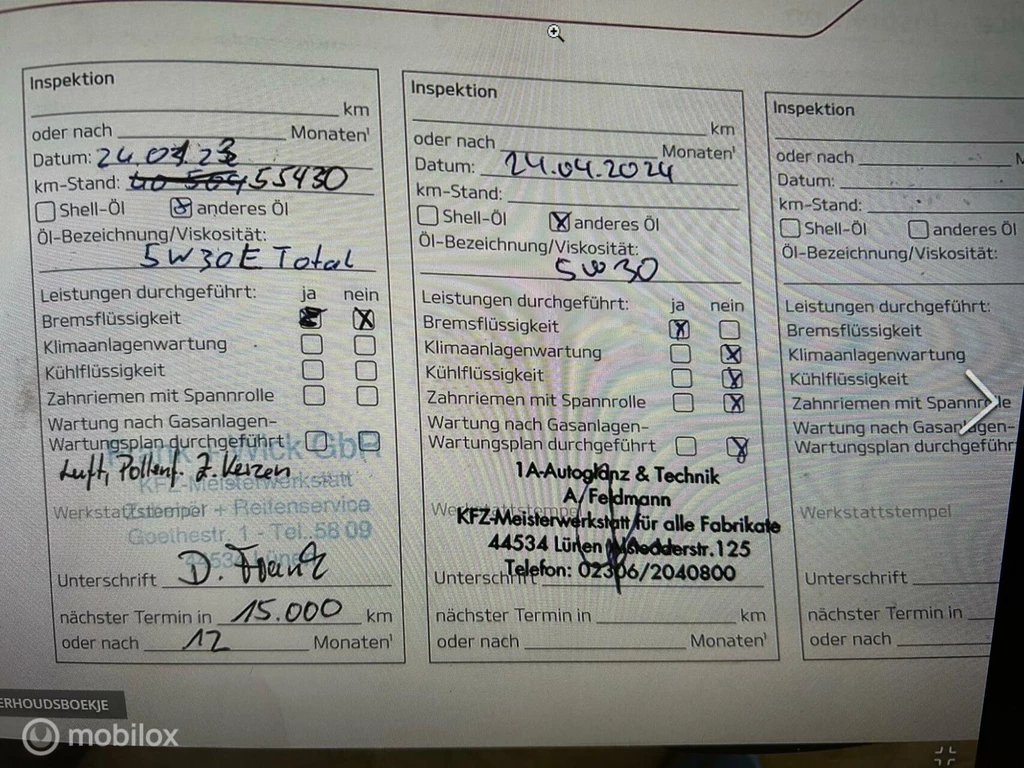 Inspektion
km
oder nach Monaten¹
Datum: 24.03.23
km-Stand: 55430
Shell-Öl anderes Öl
Öl-Bezeichnung/Viskosität:
5W30E Total
Leistungen durchgeführt: ja nein
Bremsflüssigkeit
Klimaanlagenwartung
Kühlflüssigkeit
Zahnriemen mit Spannrolle
Wartung nach Gasanlagen-
Wartungsplan durchgeführt
Luft, Pollenf. Z. Kerzen
KFZ-Meisterwerkstatt
Werkstattstempel + Reifenservice
Goethestr. 1 - Tel. 58 09
Unterschrift D. Frank
nächster Termin in 15.000 km
oder nach 12 Monaten¹
Inspektion
km
oder nach Monaten¹
Datum: 24.04.2024
km-Stand:
Shell-Öl anderes Öl
Öl-Bezeichnung/Viskosität:
5W30
Leistungen durchgeführt: ja nein
Bremsflüssigkeit
Klimaanlagenwartung
Kühlflüssigkeit
Zahnriemen mit Spannrolle
Wartung nach Gasanlagen-
Wartungsplan durchgeführt
1A-Autoglanz & Technik
A. Feldmann
KFZ-Meisterwerkstatt für alle Fabrikate
44534 Lünen
Telefon: 02306/2040800
Unterschrift
nächster Termin in km
oder nach Monaten¹
Inspektion
oder nach M
Datum:
km-Stand:
Shell-Öl anderes Öl
Öl-Bezeichnung/Viskosität:
Leistungen durchgeführt:
Bremsflüssigkeit
Klimaanlagenwartung
Kühlflüssigkeit
Zahnriemen mit Spannrolle
Wartung nach Gasanlagen-
Wartungsplan durchgeführ
Werkstattstempel
Unterschrift
nächster Termin in
oder nach
ERHOUDSBOEKJE
mobilox